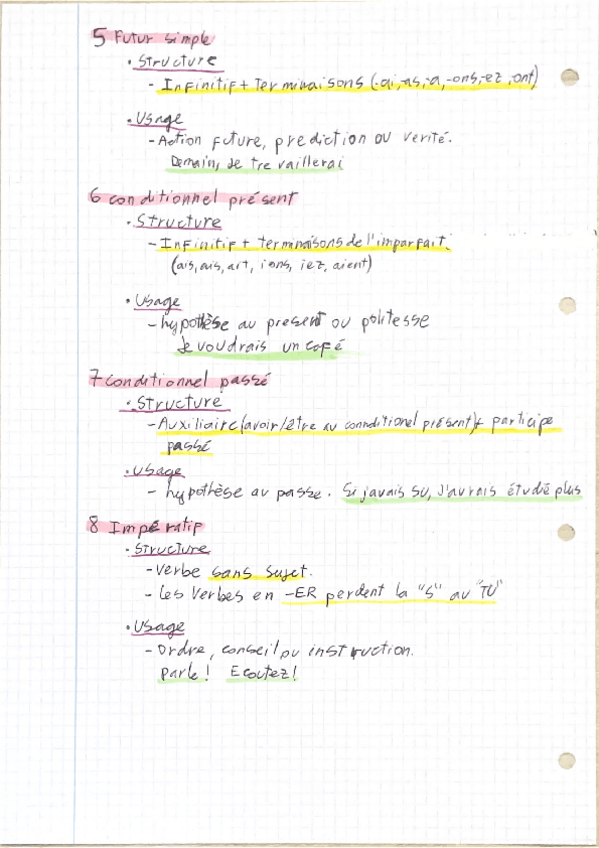 5 Futur simple
• Structure
- Infinitif + terminaisons (-ai,-as,-a,-ons,-ez,-ont)
• Usage
- Action future, prediction ou verité.
Demain, Je tre vaillerai
6 conditionnel présent
• Structure
- Infinitif + terminaisons de l'imparfait.
(ais, ais, ait, ions, iez, aient)
• Usage
- hypothèse au present ou politesse
Je voudrais un café
7 conditionnel passé
• Structure
- Auxiliaire (avoir/être au conditionel présent) + participe
passé
• Usage
- hypothèse au passe. Si javais su, J'aurais étudié plus
8 Impératif
• Structure
- Verbe sans sujet.
- Les Verbes en -ER perdent la "S" au "TU"
• Usage
- Ordre, conseil ou instruction.
Parle! Ecoutez!